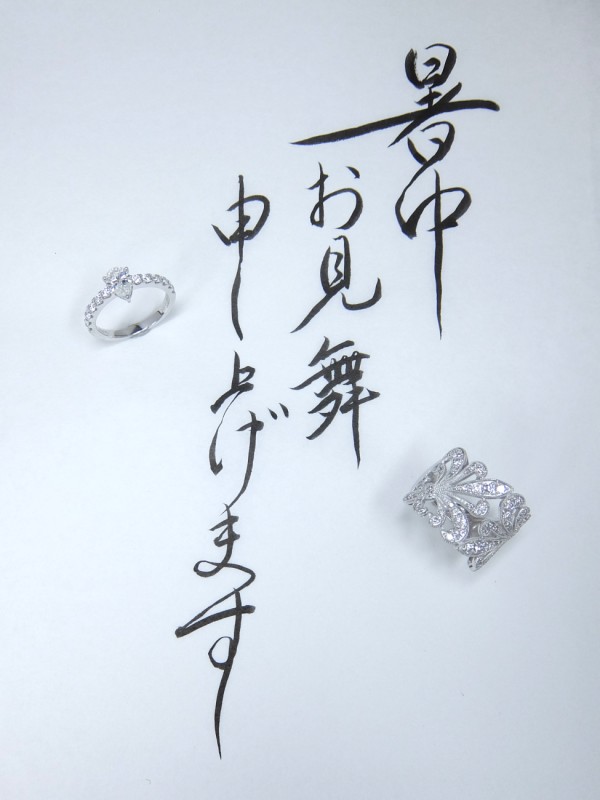 暑中
お見舞
申し上げます